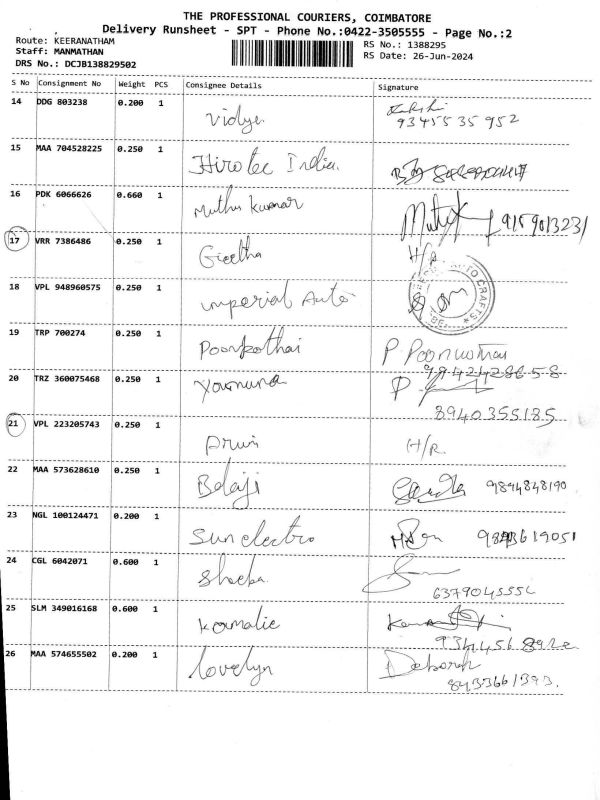 THE PROFESSIONAL COURIERS, COIMBATORE
Delivery Runsheet - SPT - Phone No.:0422-3505555 - Page No.:2
Route: KEERANATHAM
RS No.: 1388295
Staff: MANMATHAN
RS Date: 26-Jun-2024
DRS No.: DCJB138829502
S No Consignment No Weight PCS Consignee Details Signature
14 DDG 803238 0.200 1 Vidya
9345535952
15 MAA 704528225 0.250 1 Hirotec India
16 PDK 6066626 0.660 1 Muthu Kumar 9159013231
17 VRR 7386486 0.250 1 Geetha H/R
18 VPL 948960575 0.250 1 imperial Auto
19 TRP 700274 0.250 1 Poonkothai P Poonkothai
9842428658
20 TRZ 360075468 0.250 1 Yamuna
8940355185
21 VPL 223205743 0.250 1 Arun H/R
22 MAA 573628610 0.250 1 Balaji 9894848190
23 NGL 100124471 0.200 1 Sun electro
24 CGL 6042071 0.600 1 Sheeba
25 SLM 349016168 0.600 1 Kamalie
26 MAA 574655502 0.200 1 lovelyn Deborah
8433661393.